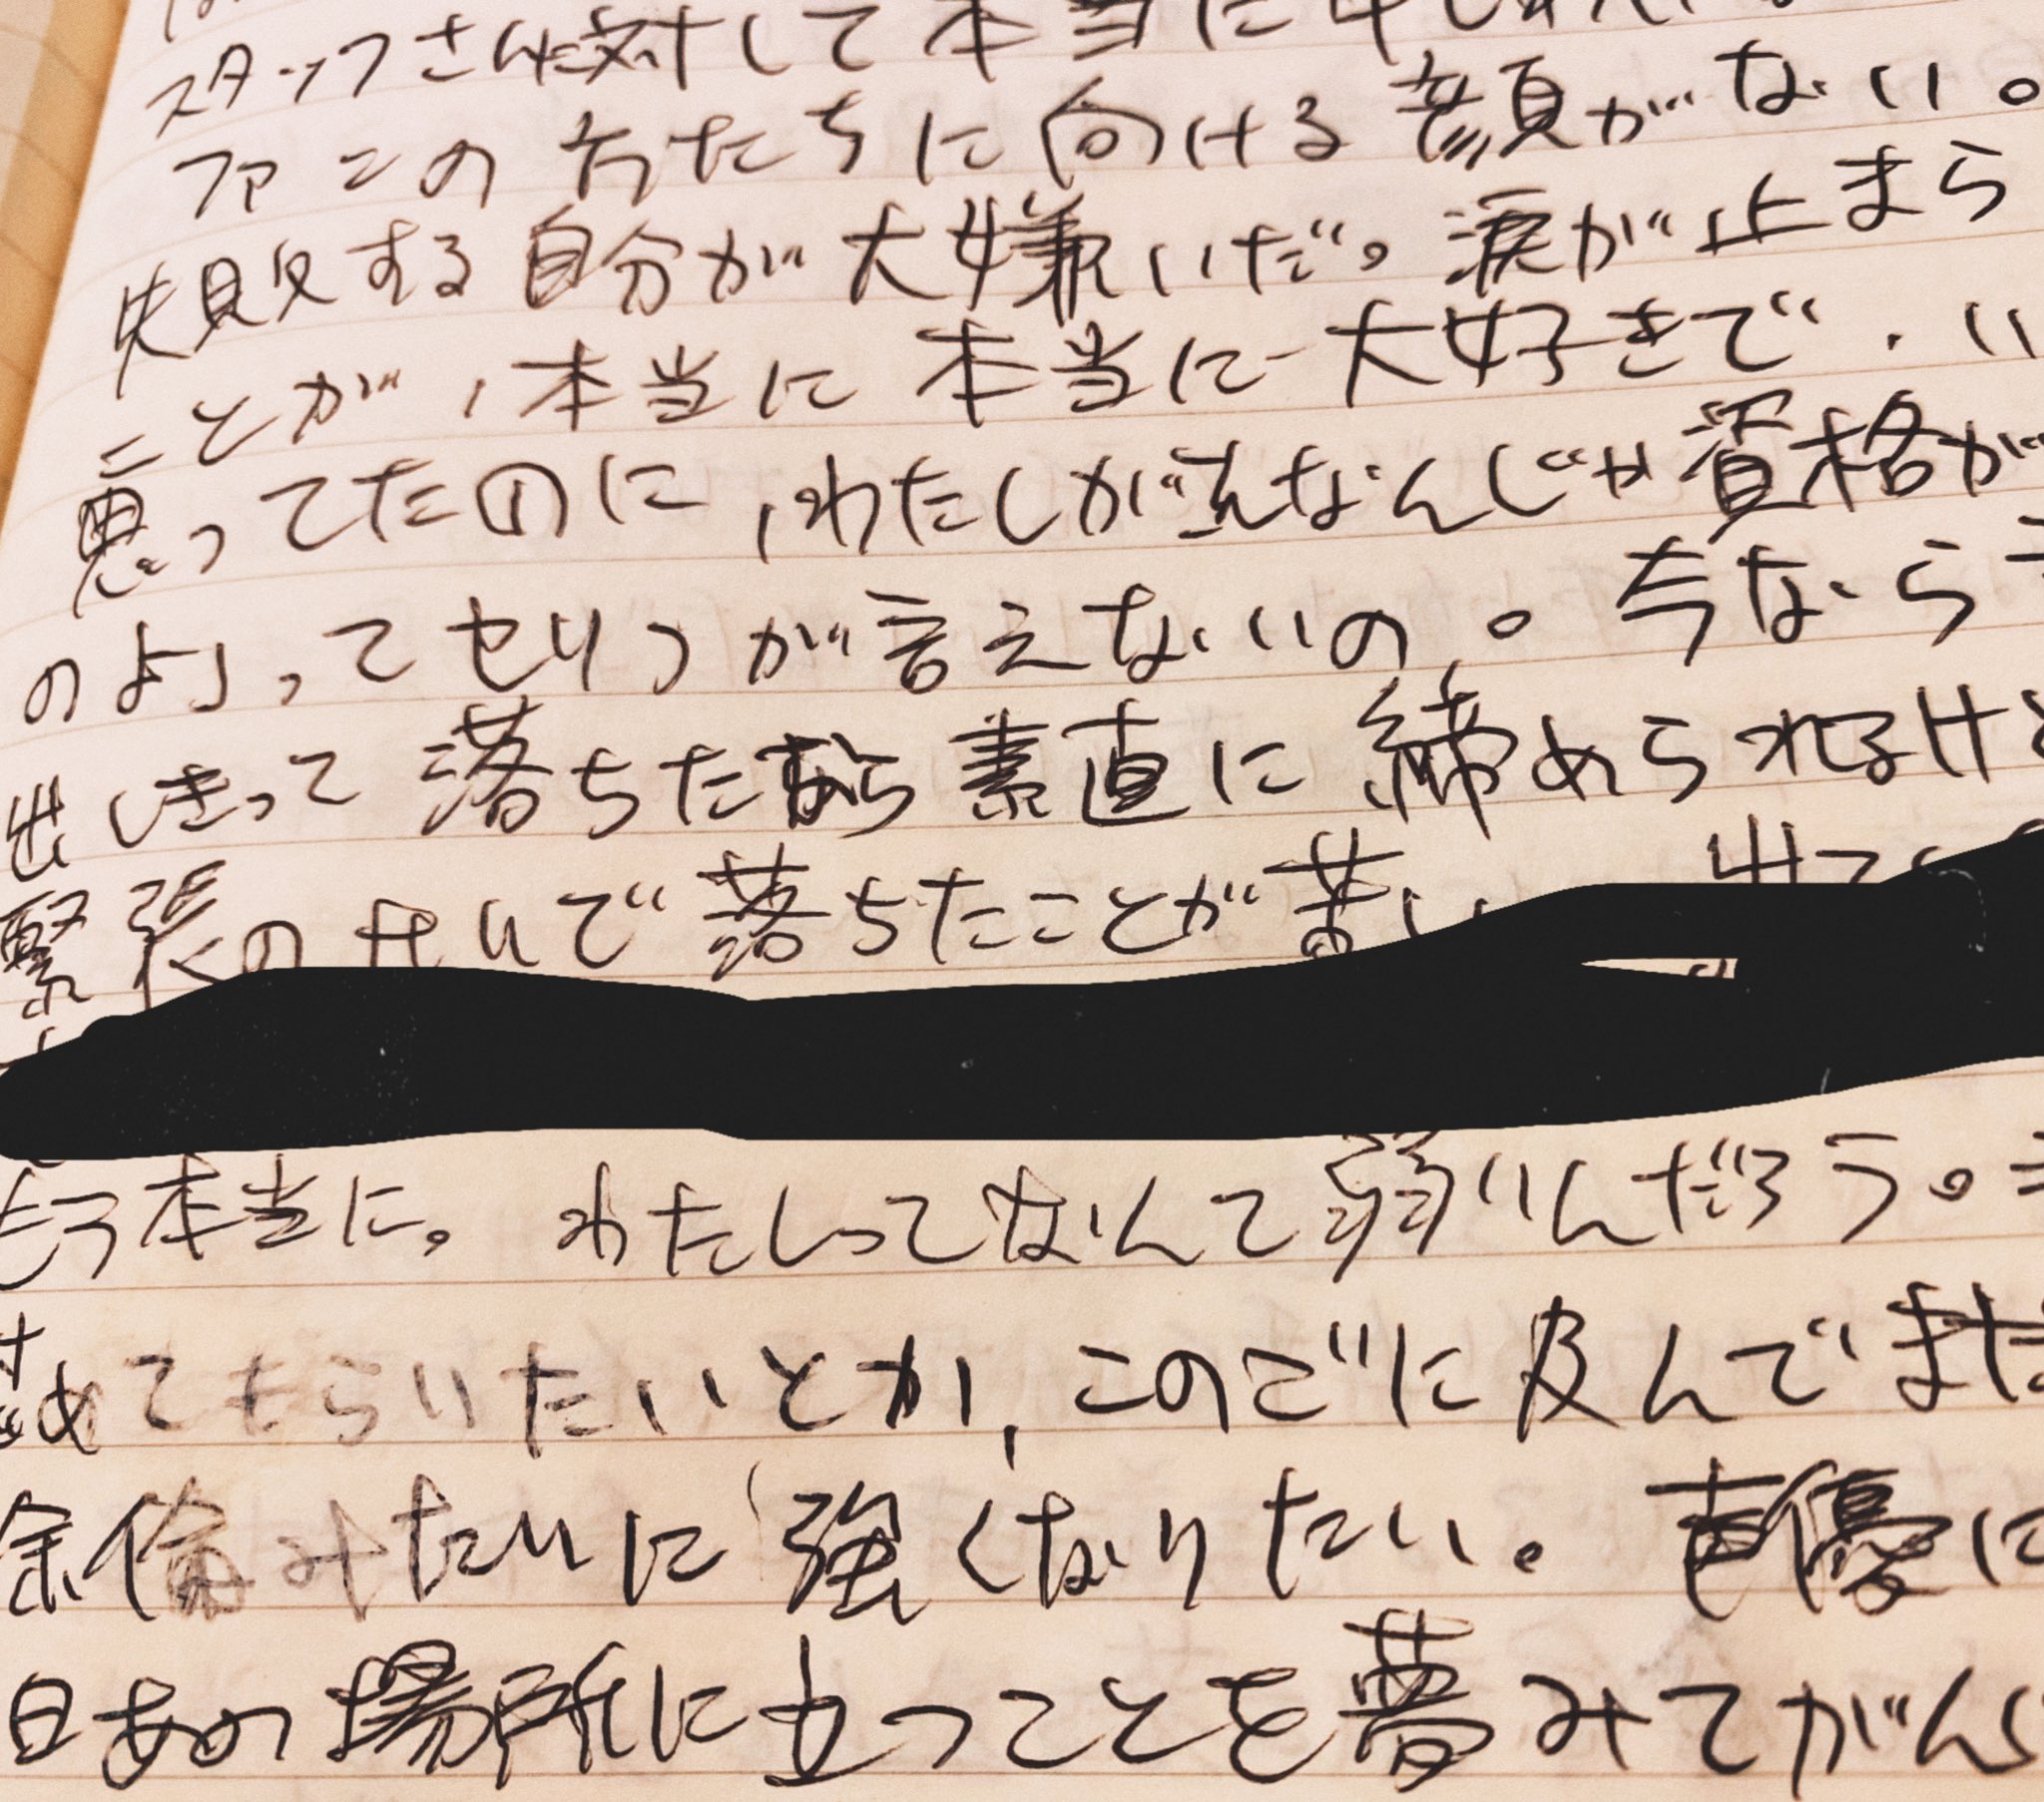 スタッフさんに対して本当に申し訳
ファンの方たちに向ける顔がない。
失敗する自分が大嫌いだ。涙が止まら
ことが、本当に本当に大好きで、い
思ってたのに、わたしが立なんじゃ資格が
のよ」ってセリフが言えないの。今なら
出しきって落ちたなら素直に締められるけど
緊張のせいで落ちたことが苦し
もう本当に。わたしってなんて弱いんだろう。
めてもらいたいとか、このごに及んでまだ
徐倫みたいに強くなりたい。声優に
日あの場所に立つことを夢みてがん